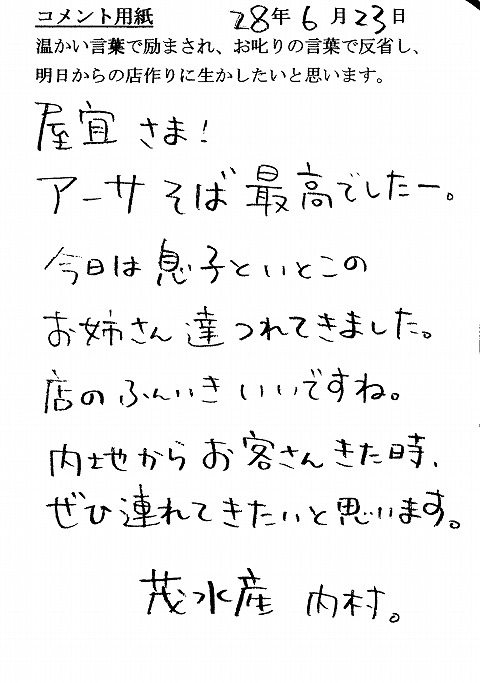 コメント用紙 28年6月23日
温かい言葉で励まされ、お叱りの言葉で反省し、
明日からの店作りに生かしたいと思います。
屋宜さま!
アーサそば最高でしたー。
今日は息子といとこの
お姉さん達つれてきました。
店のふんいきいいですね。
内地からお客さんきた時、
ぜひ連れてきたいと思います。
茂水産 内村。